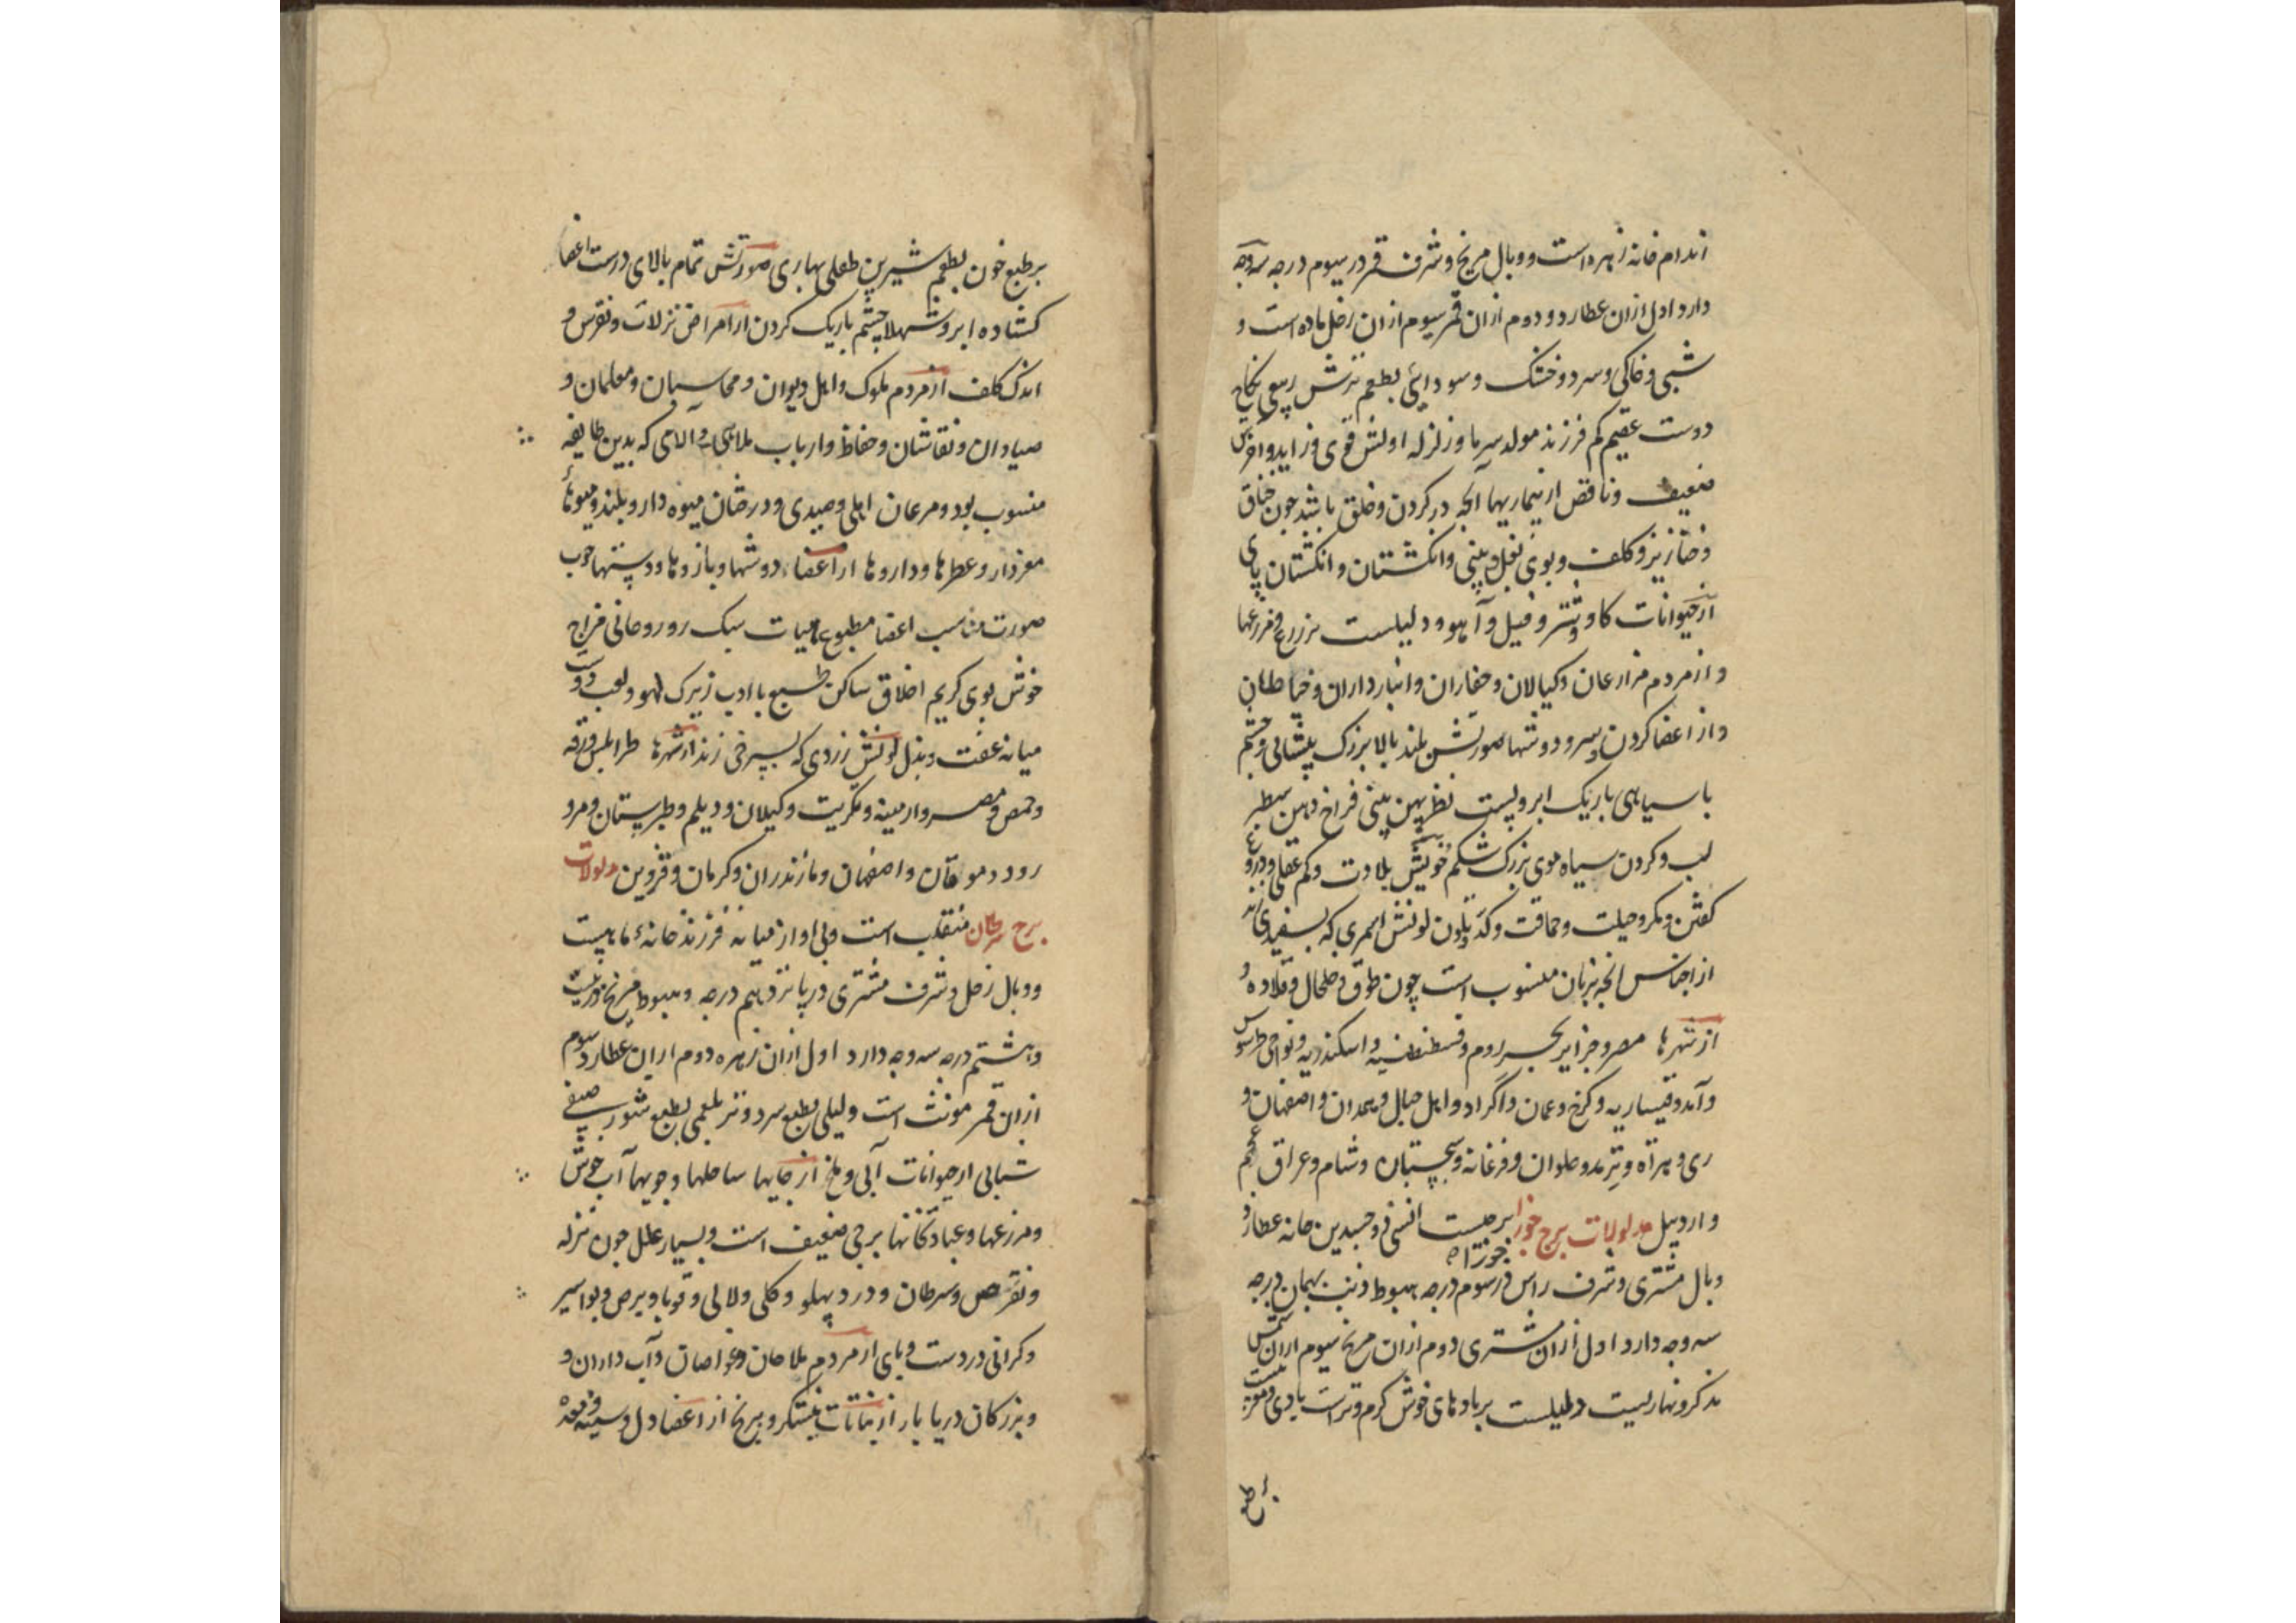 اندام خانه زهره است و وبال مریخ و شرف قمر در سیوم درجه سه وجه
دارد اول ازان عطارد و دوم ازان قمر سیوم ازان زحل ماده است و
شبی و خاکی و سرد و خشک و سودائی بطعم ترش ربیعی نکاح
دوست عقیم کم فرزند مولد سرما و زلزله اولش قوی و زاید و اخرش
ضعیف و ناقص از بیماریها آنچه در کردن و حلق باشد چون خناق
و خنازیر و کلف و بوی بغل و بینی و انکشتان و انکشتان پای
از حیوانات کاو و شتر و فیل و آهو و دلیلست بر زرع و مزرعها
و از مردم مزارعان و کیالان و حفاران و انبارداران و خیاطان
و از اعضا کردن و سر و دوشها صورتش بلند بالا بزرک پیشانی و چشم
با سیاهی باریک ابرو پست نظر پهن بینی فراخ دهن سطبر
لب و کردن سیاه موی بزرک شکم خویش بلادت و کم عقلی و دروغ
کفتن و مکر و حیلت و حماقت و لونش اسمری که بسفیدی زند
از اجناس آنچه بزنان منسوب است چون طوق و خلخال و قلاده و
از شهرها مصر و جزایر بحر روم و قسطنطنیه و اسکندریه و نواحی طرسوس
و آمد و قیساریه و کرخ و عمان و اکراد و اهل جبال و همدان و اصفهان و
ری و هراة و ترمد و حلوان و فرغانه و سجستان و شام و عراق عجم
و اردبیل مدلولات برج جوزا برجیست انسی ذو جسدین خانه عطارد و
جوزا
وبال مشتری و شرف راس در سوم درجه هبوط ذنب بهمان درجه
سه وجه دارد اول ازان مشتری دوم ازان مریخ سیوم ازان شمس
مذکر و نهاریست دلیلست بر بادهای خوش کرم و تر است بادی و مغربیست
بر طبع خون بطعم شیرین طفلی بهاری صورتش تمام بالای درست اعضا
کشاده ابرو شهلا چشم باریک کردن از امراض نزلات و نقرس و
اندک کلف از مردم ملوک و اهل دیوان و محاسبان و معلمان و
صیادان و نقاشان و حفاظ و ارباب ملاهی و آلاتی که بدین طایفه
منسوب بود و مرغان اهلی و صیدی و درختان میوه دار و بلند و میوهای
مغزدار و عطرها و داروها از اعضا دوشها و بازوها و دستها خوب
صورت مناسب اعضا مطبوع هیات سبک رو روحانی مزاج
خوش بوی کریم اخلاق ساکن طبع با ادب زیرک لهو و لعب دوست
میانه عفت و بذل لونش زردی که بسرخی زند از شهرها طرابلس و رقه
و حمص و مصر و ارمینه و تکریت و کیلان و دیلم و طبرستان و مرو
رود و موقان و اصفهان و مازندران و کرمان و قزوین مدلولات
برج سرطان منقلب است و بی اواز میانه فرزند خانهٔ ماهست
و وبال زحل و شرف مشتری در پانزدهم درجه و هبوط مریخ در بیست
و هشتم درجه سه وجه دارد اول ازان زهره دوم ازان عطارد سوم
ازان قمر مونث است و لیلی بطبع سرد و تر بلغمی بطبع شور صیفی
شبابی از حیوانات آبی و ملخ از جایها ساحلها و جویها آب خوش
و مزرعها و عبادتکانها برجی ضعیف است و بسیار علل چون نزله
و نقرص و سرطان و درد پهلو و کلی و لالی و قوبا و برص و بواسیر
و کرانی در دست و پای از مردم ملاحان و غواصان و آب داران و
و بزرکان دریا بار از نباتات نیشکر و برنج از اعضا دل و سینه و معده